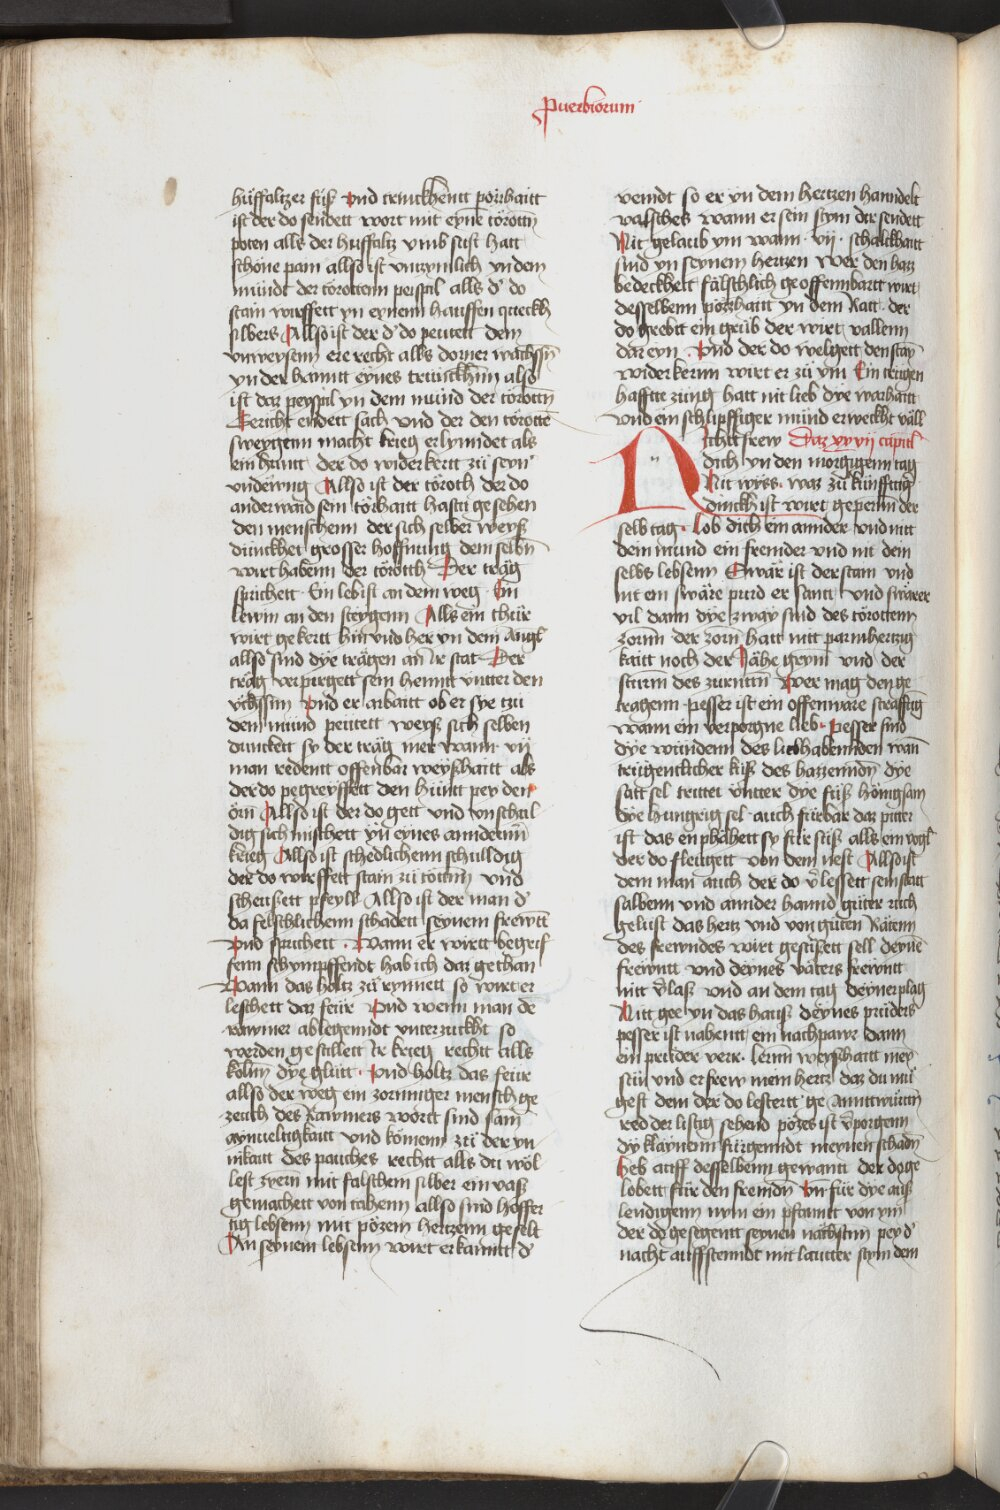 Puerbiorum
hüffaltzer füß Vnd trinckhentt pözzhaitt
ist der do sendett wort mit eyne törottñ
poten alls der huffaltz vmb sust hatt
schöne pain allso ist vnzymlich yn dem
mündt der törottenn peispil alls d' do
stain wirffett yn eynenn hauffen queckh
silbers Allso ist der d' do peütett dem
vnweysenn ere recht alls dorner wachssñ
yn der hanntt eynes trunckhñn also
ist daz peyspil yn dem münd der törottñ
Gericht endett sach vnd der den törottē
sweygenn macht krieg erlynndet als
ein hunt der do widerkertt zü seyn'
vndewng Allso ist der töroth der do
anderwaid sein törhaitt hastu gesehen
den menschenn der sich selber weyß
dunckhet grosser hoffnung dem selbñ
wirt habenn der törotth Der träg
sprichett Ein leb ist an dem weg Ein
lewin an den steygenn Alls ein thür
wirt gekertt hin vnd her yn dem Angl'
allso sind dye trägen an ir stat Der
träg verpirgett sein hennt vntter den
üchssñn Vnd er arbaitt ob er sye tzü
dem mund peütett weyß sich selben
dunckett sy der träg mer wann vij
man redentt offenbar weyßhaitt als
der do pegreyffett den hunt pey den
örn̄ Allso ist der do gett vnd vnschul
dig sich mischett yn eynes anndernn
krieg Allso ist schedlichenn schulldig
der do wirffett stain zü tottñ vnd
scheüssett pfeyll Allso ist der man d'
da felschlichenn schadett seynem frewntt
Vnd sprichett Wann er wirtt begrif
fenn schympffendt hab ich daz gethan
Wann das holtz zü rynnett so wirt er
leschett daz feür Vnd wenn man de
rawner ablegenndt vnterzuckht so
werden gestillett ir krieg rechtt alls
kolnn dye glütt Vnd holtz das feur
allso der weg ein zorniger mensch ge
zeüch des Rawners wortt sind sam
aynueltigkaitt vnd kömenn zü der yn
nikaitt des pauches rechtt alls du wöl
lest zyern mit falschem silber ein vaß
gemachett von tahenn allso sind hoffer
tig lebsenn mit pözem hertzenn geselt
An seynem lebsenn wirt erkannt d'
veindt so er yn dem hertzen hanndelt
valsches wann er sein stym der sendett
Nit gelaub ym wann vij schalckhaitt
sind yn seynem hertzen Wer den hazz
bedeckhett fälschlich geoffennbartt wirt
desselbenn pözzhaitt yn dem Ratt der
do grebtt ein grüb der wirt vallenn
dar eyn Vnd der do welgett den stay
widerkernn wirt er zü ym Ein trügen
hafftte züng hatt nit lieb dye warhaitt
vnd ein schlipffiger münd erweckht väll
Nichtt frew Daz xxvij capitel
dich yn den morgigenn tag
Nit wyss waz zü künfftig
dinckh ist wirt geperenn der
selb tag Lob dich ein annder vnd nit
dein mund ein fremder vnd nit dein
selbs lebsenn Swär ist der stain vnd
nit ein swäre pürd er santt vnd swärer
vil dann dye zway sind des törottenn
zornn der zorn hatt nitt parmhertzig
kaitt noch der Jähe grym vnd der
sturm des zurntñn Wer mag den ge
tragenn pesser ist ein offenware straffüg
wann ein verporgne lieb pesser sind
dye wündenn des liebhabennden wan
trügentlicher kuß des hazzenndñ dye
satt sel trittet vntter dye füß hönigsam
dye hungrig sel auch fürbar daz pitter
ist das enphähett sy für süß alls ein vogl'
der do flewgett von dem nest Allso ist
dem man auch der do v'lessett sein statt
salbenn vnd annder hannd gütte rüch
gelüst das hertz vnd von güten Rätenn
des frewndes wirt gesüsett sell deynē
frewntt vnd deynes vaters frewntt
nitt v'laß vnd an dem tag deyner plag
Nitt gee yn das hauß deynes prüders
pesser ist nahentt ein nachpawr dann
ein prüder verr lernn weyßhaitt mey
sün vnd erfrew mein hertz daz du mü
gest dem der do lestertt ge Anntwürtñ
red der listig sehend pözes ist v'porgenn
dy klaynenn fürgenndt meynen schadñ
Heb auff desselbenn gewantt der do ge
lobett für den fremdñ Vn für dye auß
lendigenn nym ein pfanntt von ym
der do gesegentt seynen nächstñn pey d'
nacht auffstenndt mit lautter stym dem